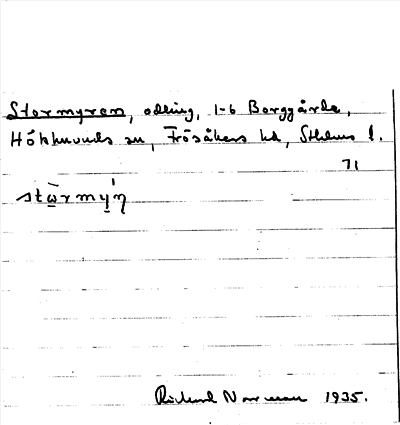 Stormyren, odling, 1-6 Borggårde,
Hökhuvuds sn, Frösåkers hd, Sthlms l.
71
stωrmy̱'ŋ
Rickard Norman 1935.